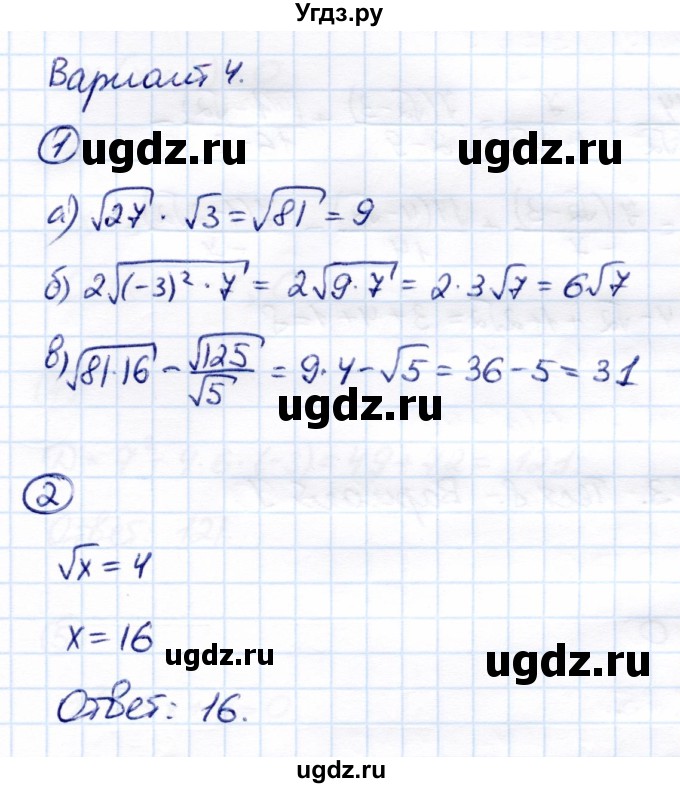 Угдз.ру
Вариант 4.
1 ugdz.ru ugdz.ru
а) √27 · √3 = √81 = 9
б) 2√(-3)² · 7 = 2√9·7 = 2·3√7 = 6√7
в) √81·16 - √125/√5 = 9·4 - √5 = 36 - 5 = 31
ugdz.ru
2
√x = 4
x = 16
ugdz.ru ugdz.ru
Ответ: 16.
ugdz.ru